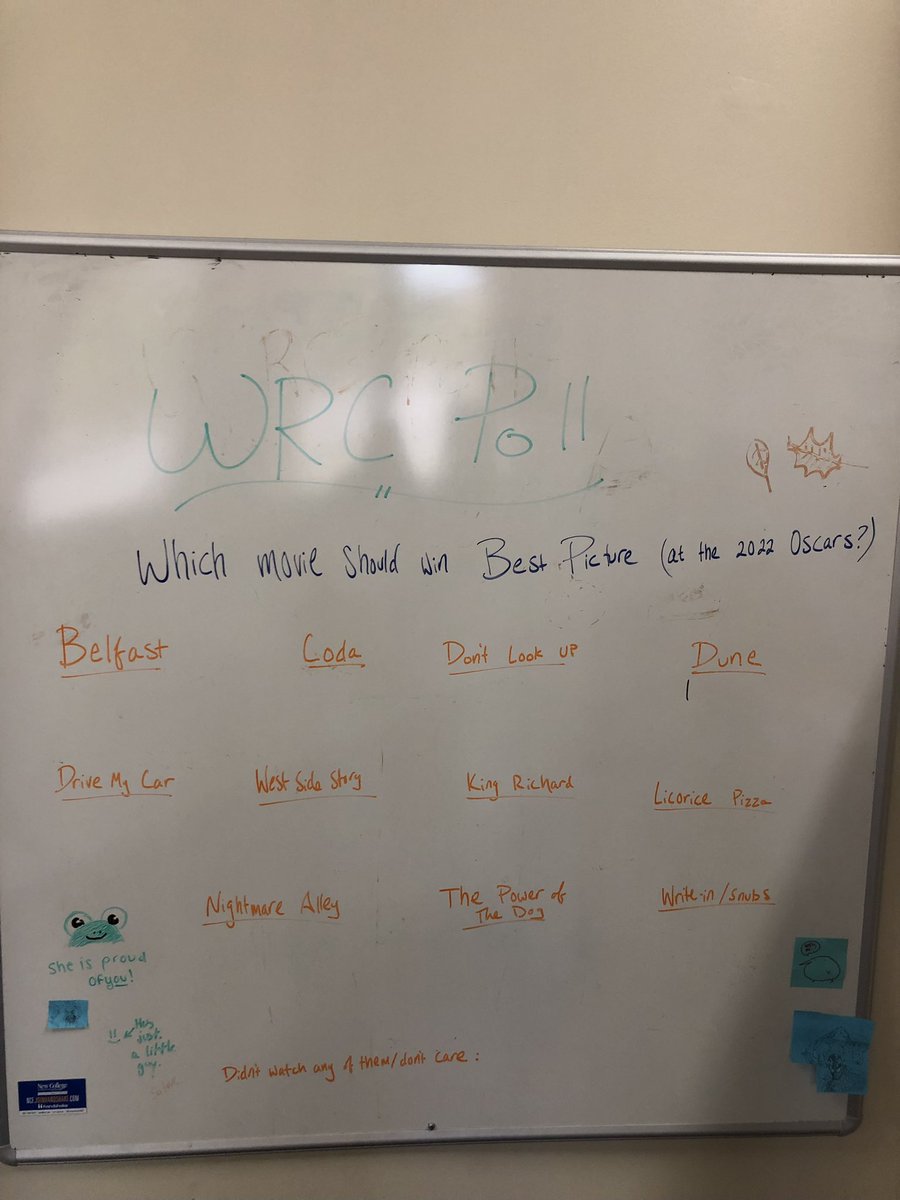 WRC Poll
Which movie should win Best Picture (at the 2022 Oscars?)
Belfast
Coda
Don't Look UP
Dune
Drive My Car
West Side Story
King Richard
Licorice Pizza
Nightmare Alley
The Power of
The Dog
Write-in/snubs
She is proud
of you!
He's
just
a little
guy.
Didn't watch any of them/don't care:
New College